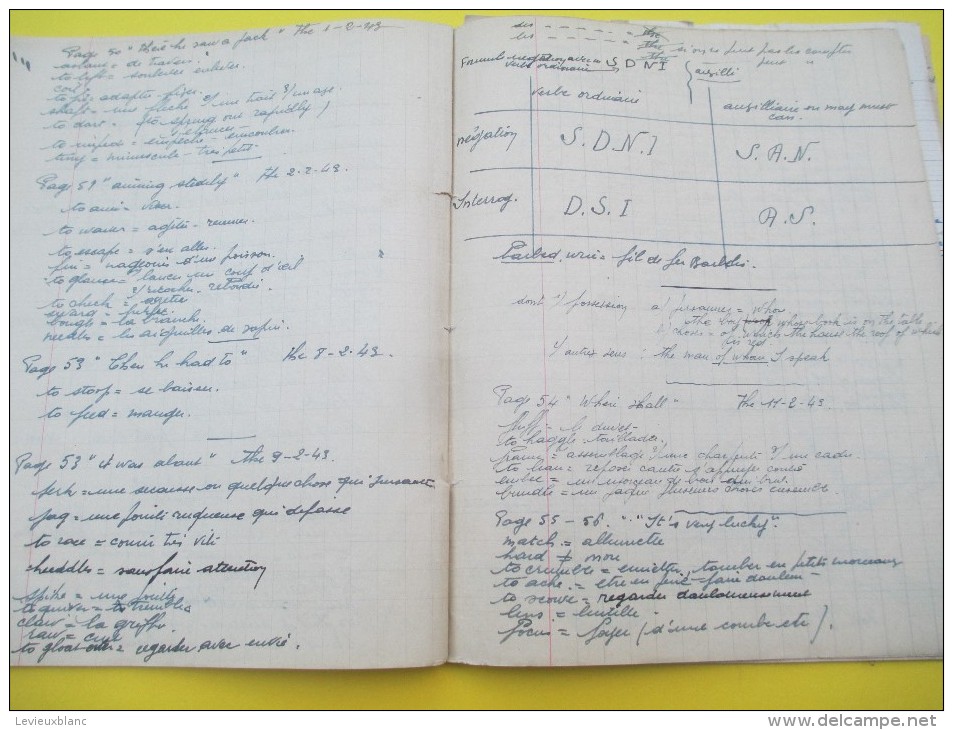 Page 50 " Then he saw a jack " the 1-2-43
= de travers.
to lift = soulever enlever.
to fix, adapter, fixer.
shaft = une flèche d'une trait d'
to dart. (to sprung out rapidly)
to = empêcher encombrer.
tiny = minuscule - très petit
Page 51 " aiming steadily " the 2-2-43.
to aim = viser.
to waver = agiter - remuer.
to escape = s'en aller.
fin = nageoire d'un poisson.
to glance = lancer un coup d'œil
ricocher. rebondir.
to check =
boughs = la branche.
needles = les aiguilles de sapin.
Page 53 " Then he had to " the 8-2-43.
to stoop = se baisser.
to feed = manger.
Page 53 " it was about " the 9-2-43.
jerk = une secousse ou quelque chose qui
jag = une pointe rugueuse qui dépasse
to race = courir très vite
= sans faire attention
spike = une pointe
to quiver = to tremble
claw = la griffe.
raw = crue
to gloat over = regarder avec envie.
des - - - - - the
les - - - - - the si on ne peut pas les compter
Formule négation avec verbe ordinaire S D N I
verbe ordinaire
auxilliaire ou may must can.
négation
S.D.N.I
S.A.N.
Interrog.
D.S.I
A.S.
Barbed wire = fil de fer Barbelé.
dont 1/ possession a/ personnes = whose
the boy whose book is on the table
b/ chose = of which the house the roof of which
is red
2/ autres sens : the man of whom I speak
Page 54 " Where shall " the 11-2-43.
fluff = le duvet
to haggle taillader.
frame = assemblage d'une charpente d'un cadre
to lean = reposé contre s'appuyer contre
ember = un morceau de bois qui brûle.
bundle = un paquet plusieurs choses ensemble.
Page 55 - 56. " It's very lucky ".
match = allumette
hard ≠ mou
to crumble = émietter, tomber en petits morceaux
to ache = être en peine - faire douleur
to scowl = regarder douloureusement
lens = lentille
Focus = foyer (d'une courbe etc).
Levieuxblanc
delcampe.net